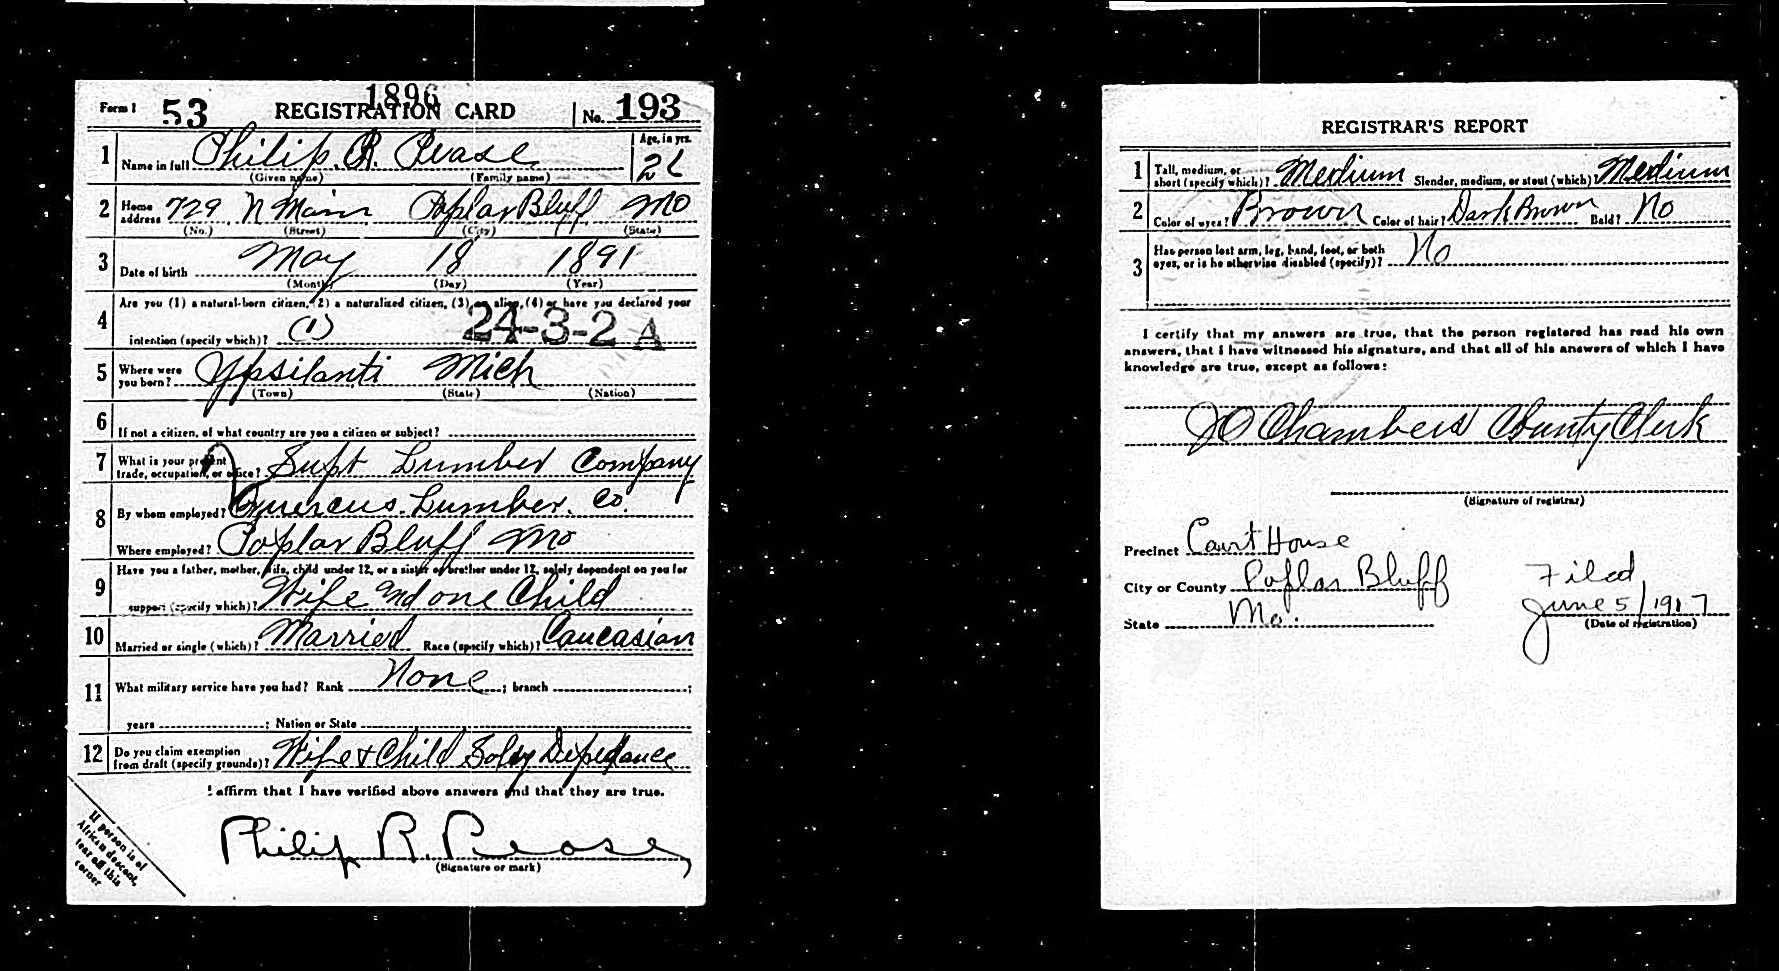 1896
Form 1 53 REGISTRATION CARD No. 193
1 Name in full Philip. R. Pease Age, in yrs. 26
(Given name) (Family name)
2 Home address 729 N Main Poplar Bluff Mo
(No.) (Street) (City) (State)
3 Date of birth May 18 1891
(Month) (Day) (Year)
4 Are you (1) a natural-born citizen, (2) a naturalized citizen, (3) an alien, (4) or have you declared your
intention (specify which)? (1) 24-3-2 A
5 Where were you born? Ypsilanti Mich
(Town) (State) (Nation)
6 If not a citizen, of what country are you a citizen or subject?
7 What is your present trade, occupation, or office? Supt Lumber Company
8 By whom employed? Quercus Lumber. Co.
Where employed? Poplar Bluff Mo
9 Have you a father, mother, wife, child under 12, or a sister or brother under 12, solely dependent on you for
support (specify which)? Wife and one Child
10 Married or single (which)? Married Race (specify which)? Caucasian
11 What military service have you had? Rank None ; branch ;
years ; Nation or State
12 Do you claim exemption from draft (specify grounds)? Wife & Child Soley Dependance
I affirm that I have verified above answers and that they are true.
Philip R. Pease
(Signature or mark)
If person is of
African descent,
tear off this
corner
REGISTRAR'S REPORT
1 Tall, medium, or short (specify which)? Medium Slender, medium, or stout (which) Medium
2 Color of eyes? Brown Color of hair? Dark Brown Bald? No
3 Has person lost arm, leg, hand, foot, or both
eyes, or is he otherwise disabled (specify)? No
I certify that my answers are true, that the person registered has read his own
answers, that I have witnessed his signature, and that all of his answers of which I have
knowledge are true, except as follows:
JO Chambers County Clerk
(Signature of registrar)
Precinct Court House
City or County Poplar Bluff Filed
State Mo. June 5/1917
(Date of registration)